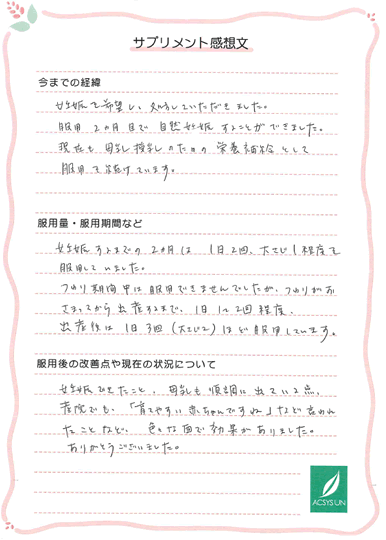 サプリメント感想文
今までの経緯
妊娠を希望し、処方していただきました。
服用2カ月目で自然妊娠することができました。
現在も母乳授乳のための栄養補給として
服用を続けています。
服用量・服用期間など
妊娠するまでの2カ月は1日2回、大さじ1程度を
服用していました。
つわり期間中は服用できませんでしたが、つわりがお
さまってから出産するまで、1日1〜2回程度、
出産後は1日3回(大さじ2)ほど服用しています。
服用後の改善点や現在の状況について
妊娠できたこと、母乳も順調に出ている点、
産院でも、「育てやすい赤ちゃんですね」など言われ
たことなど、色々な面で効果がありました。
ありがとうございました。
ACSYSUN